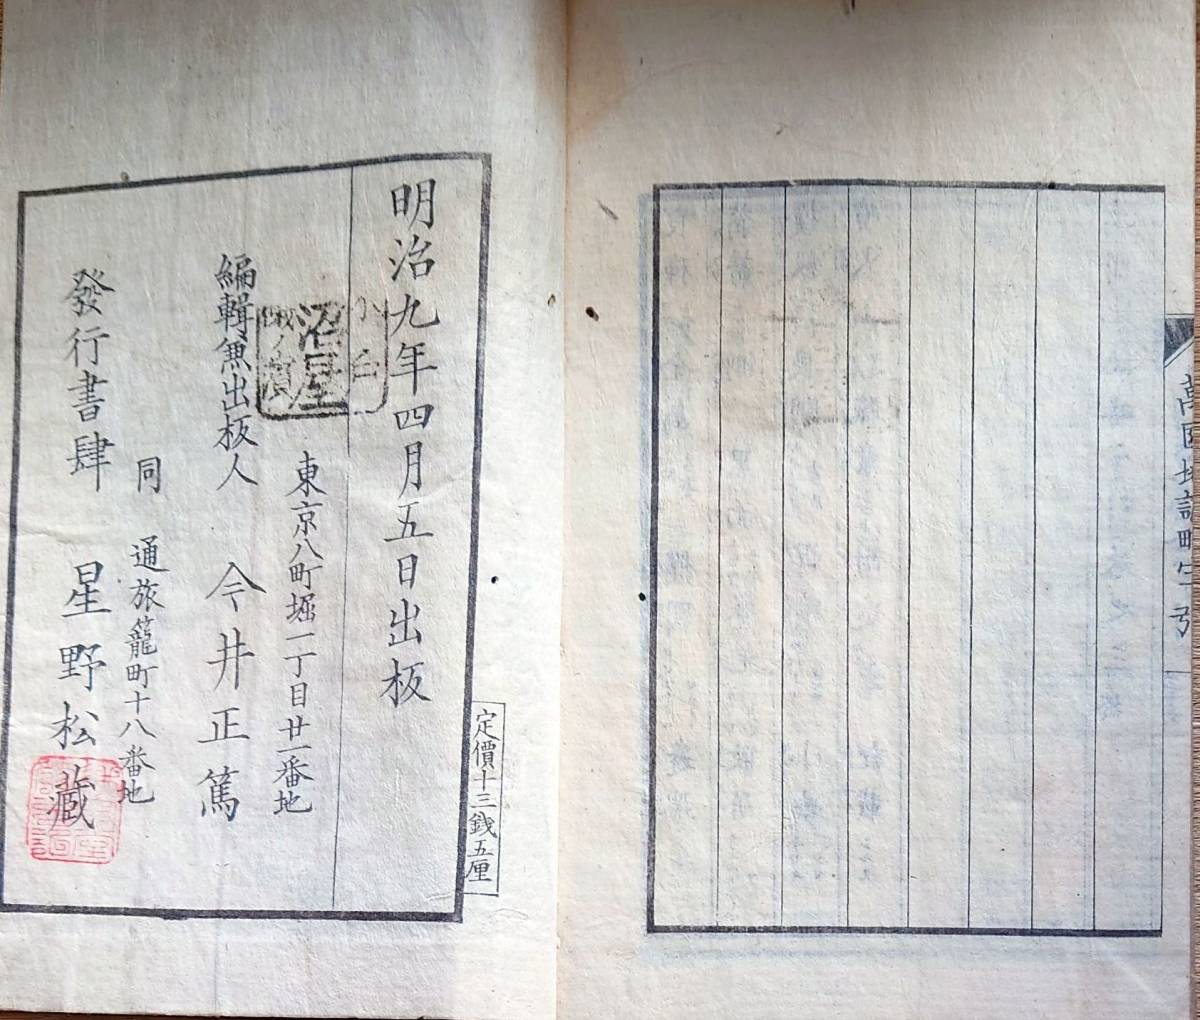 萬國地誌畧字引
定價十三錢五厘
明治九年四月五日出板
東京八町堀一丁目廿一番地
編輯兼出板人 今井正篤
同 通旅籠町十八番地
發行書肆 星野松藏
沼屋